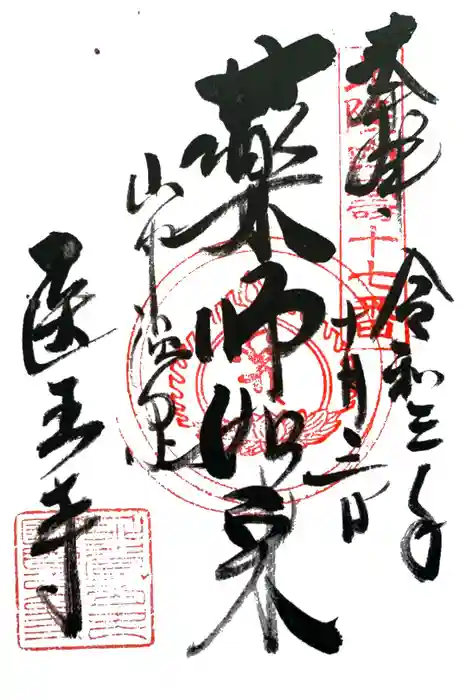 奉拝
令和三年
十七番
十月二日
薬師如来
山中温泉
医王寺